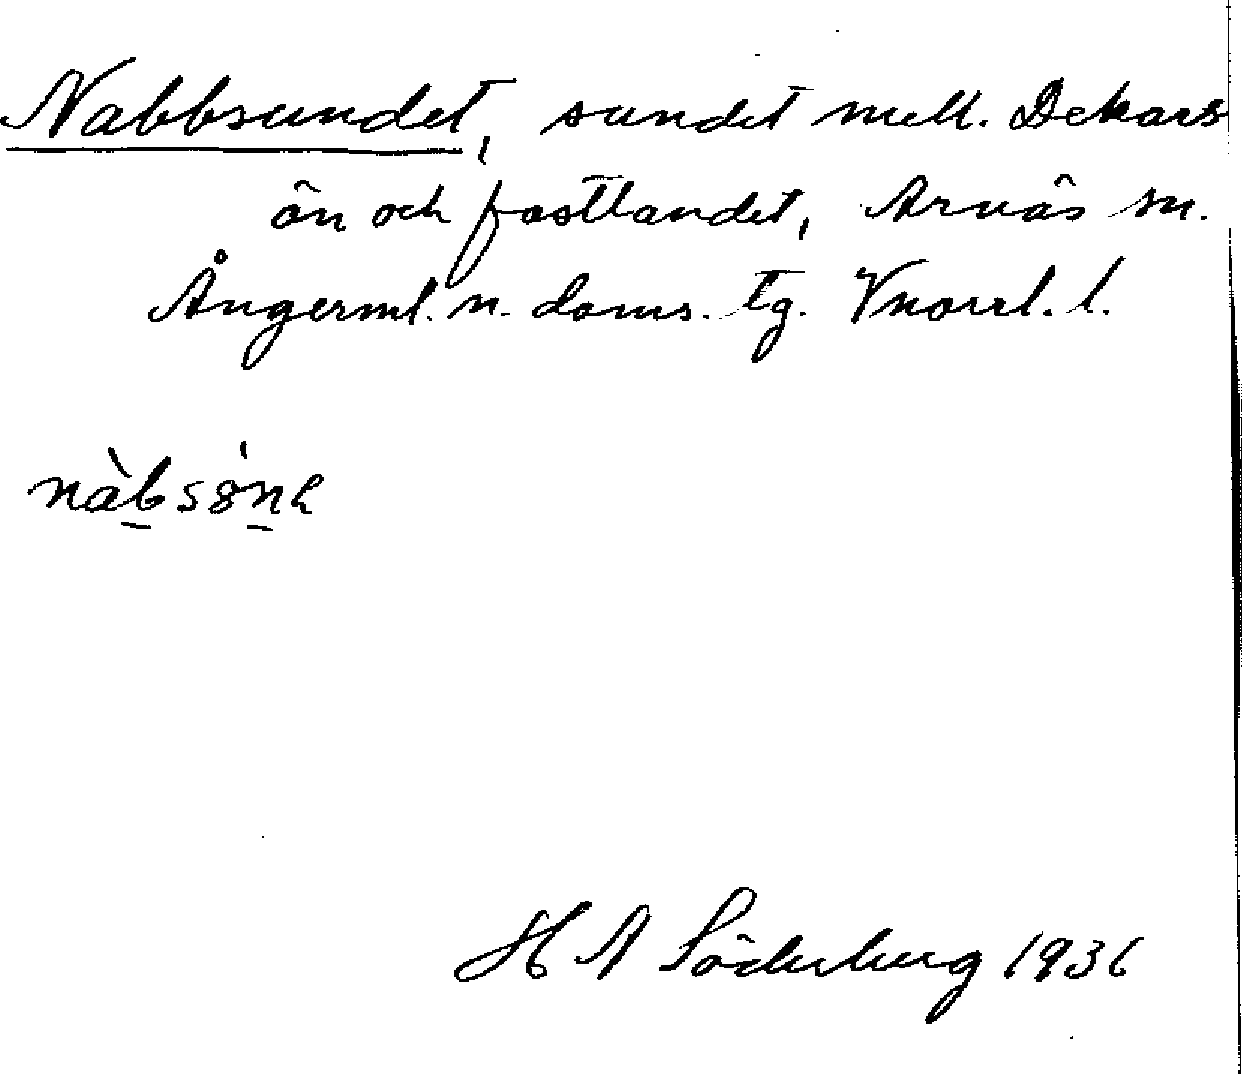 Nabbsundet, sundet mell. Dekars
ön och fastlandet, Arnäs sn.
Ångerml. n. doms. tg. Vnorrl. l.
H A Söderberg 1936